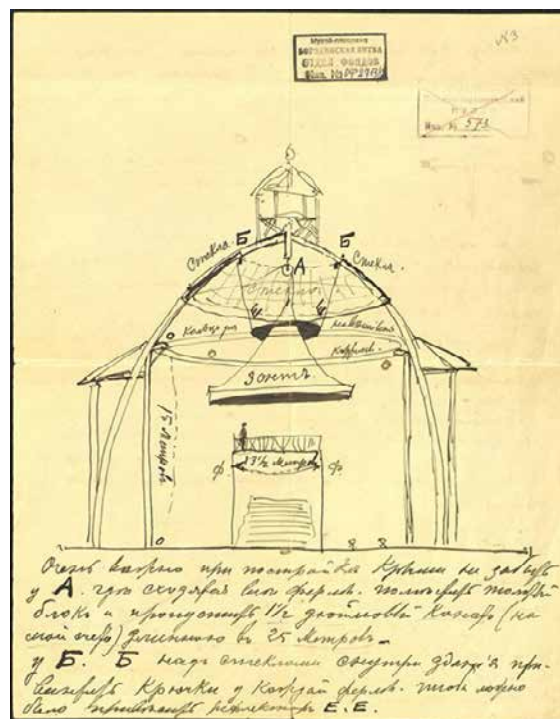 №3
Музей-панорама
БОРОДИНСКАЯ БИТВА
ОТДЕЛ ФОНДОВ
Инв. №
Инв. № 573
Б Б
Стекла. Стекла.
А
Стекло
Е Е
Карниз.
Зонтъ
15 Метровъ
13 1/2 Метровъ
Ф. Ф.
Очень важно при постройкѣ Крыши не забыть
у А. гдѣ сходятся всѣ фермы. повѣсить
блокъ и пропустить 1 1/2 дюймовый Канатъ (на
мой счетъ) длинною въ 25 Метровъ.
у Б. Б надъ стеклами снутри зданія при-
Крючки у каждой фермы. чтобъ можно
было рефлекторъ Е. Е.